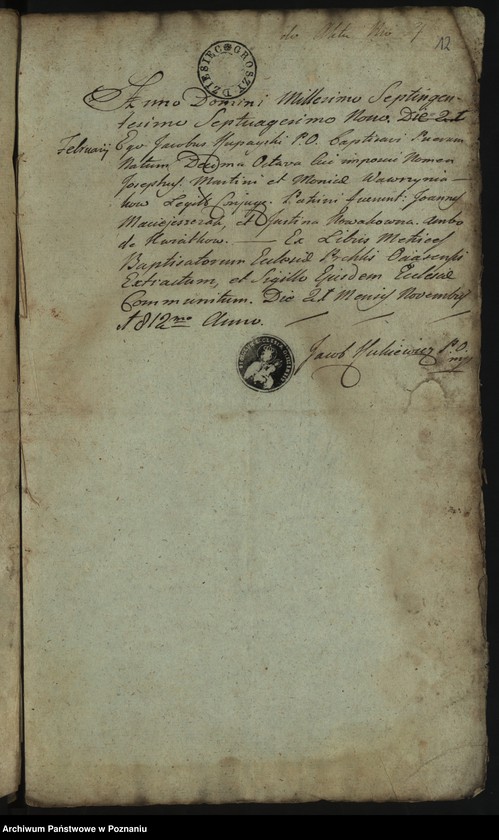 do Aktu Nro
12
DZIESIĘĆ GROSZY
Anno Domini Millesimo Septingen-
tesimo Septuagesimo Nono. Die 2da
Februarij Ego Jacobus P.O. Baptisavi Puerum
Natum Decima Octava cui imposui Nomen
Josephus. Martini et Monica Wawrzynia-
kow Legit: Conjug. Patrini fuerunt: Joannes
et Justina Nowakowna. Ambo
de Karatkow. — Ex Libris Metrices
Baptisatorum Eclesiae Prchlis
Extractum, et Sigillo Ejusdem Eclesiae
Communitum. Die 21 Mensis Novembris
1812mo Anno. — — —
Jacob P.O.
mp
Archiwum Państwowe w Poznaniu